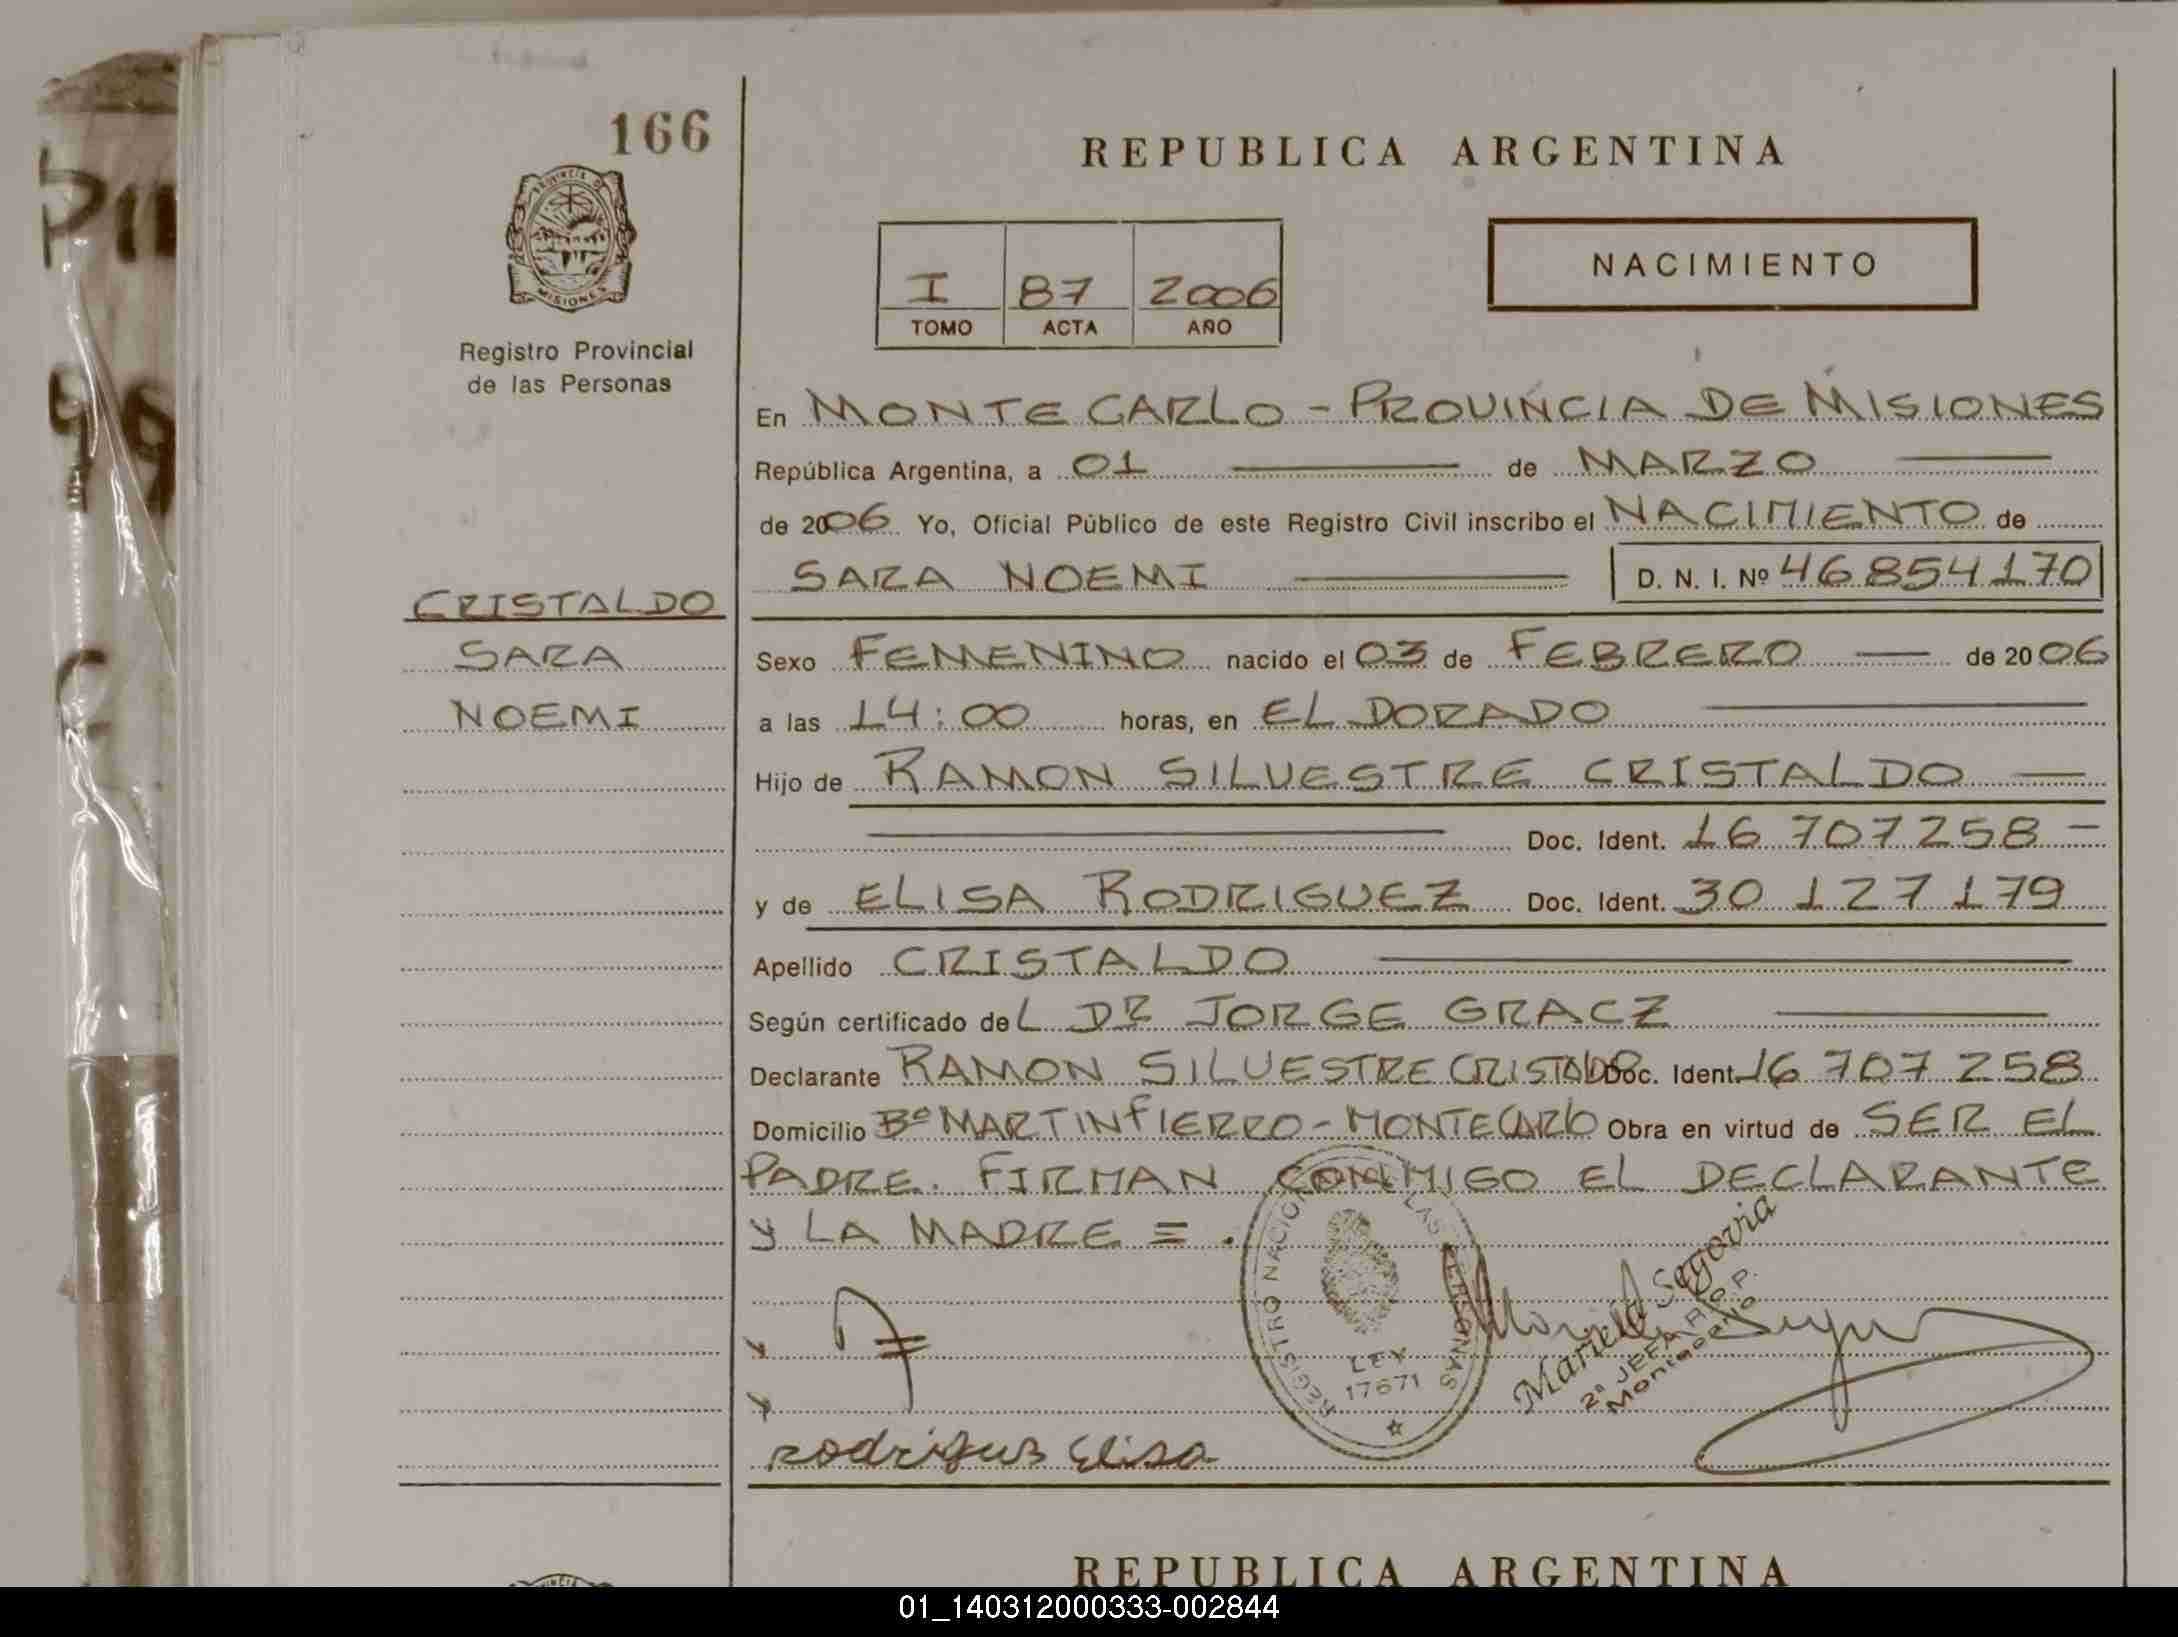 166
REPUBLICA ARGENTINA
PROVINCIA DE MISIONES
Registro Provincial
de las Personas
I 87 2006
TOMO ACTA AÑO
NACIMIENTO
En MONTECARLO - PROVINCIA DE MISIONES
República Argentina, a 01 de MARZO
de 2006 Yo, Oficial Público de este Registro Civil inscribo el NACIMIENTO de
SARA NOEMI D. N. I. Nº 46854170
CRISTALDO
SARA
NOEMI
Sexo FEMENINO nacido el 03 de FEBRERO de 2006
a las 14:00 horas, en EL DORADO
Hijo de RAMON SILVESTRE CRISTALDO
Doc. Ident. 16 707258 -
y de ELISA RODRIGUEZ Doc. Ident. 30 127 179
Apellido CRISTALDO
Según certificado del DR JORGE GRACZ
Declarante RAMON SILVESTRE CRISTALDO Doc. Ident. 16 707 258
Domicilio Bº MARTIN FIERRO - MONTECARLO Obra en virtud de SER EL
PADRE. FIRMAN CONMIGO EL DECLARANTE
Y LA MADRE = .
REGISTRO NACIONAL DE LAS PERSONAS
LEY
17671
Mariela Segovia
2ª JEFA R.P.P.
Montecarlo
Rodrigues Elisa
REPUBLICA ARGENTINA
01_140312000333-002844